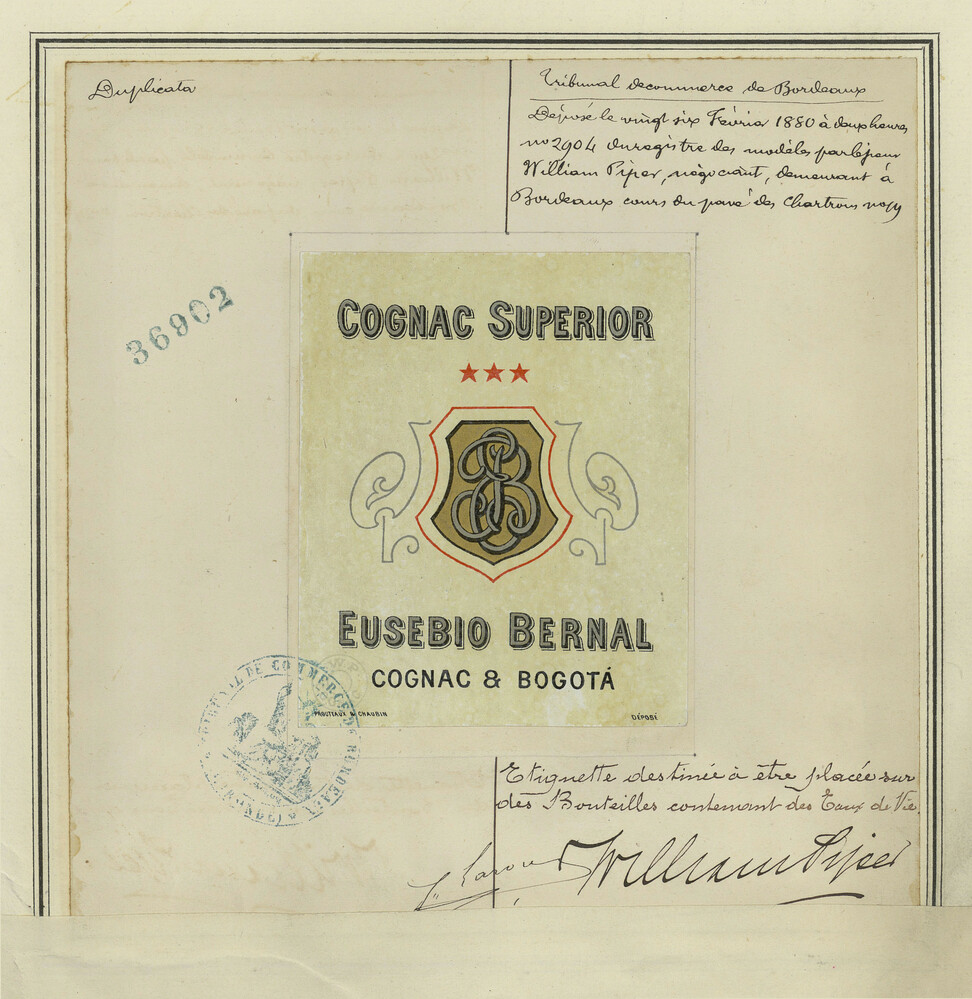 Duplicata
Tribunal de commerce de Bordeaux
Déposé le vingt six Février 1880 à deux heures
no 2904 du registre des modèles par le sieur
William Piper, négociant, demeurant à
Bordeaux cours du pavé des Chartrons no
36902
COGNAC SUPERIOR
EB
EUSEBIO BERNAL
COGNAC & BOGOTÁ
PROUTEAUX & CHAUBIN
DÉPOSÉ
TRIBUNAL DE COMMERCE DE BORDEAUX (GIRONDE)
Etiquette destinée à être placée sur
des Bouteilles contenant des Eaux de Vie
William Piper